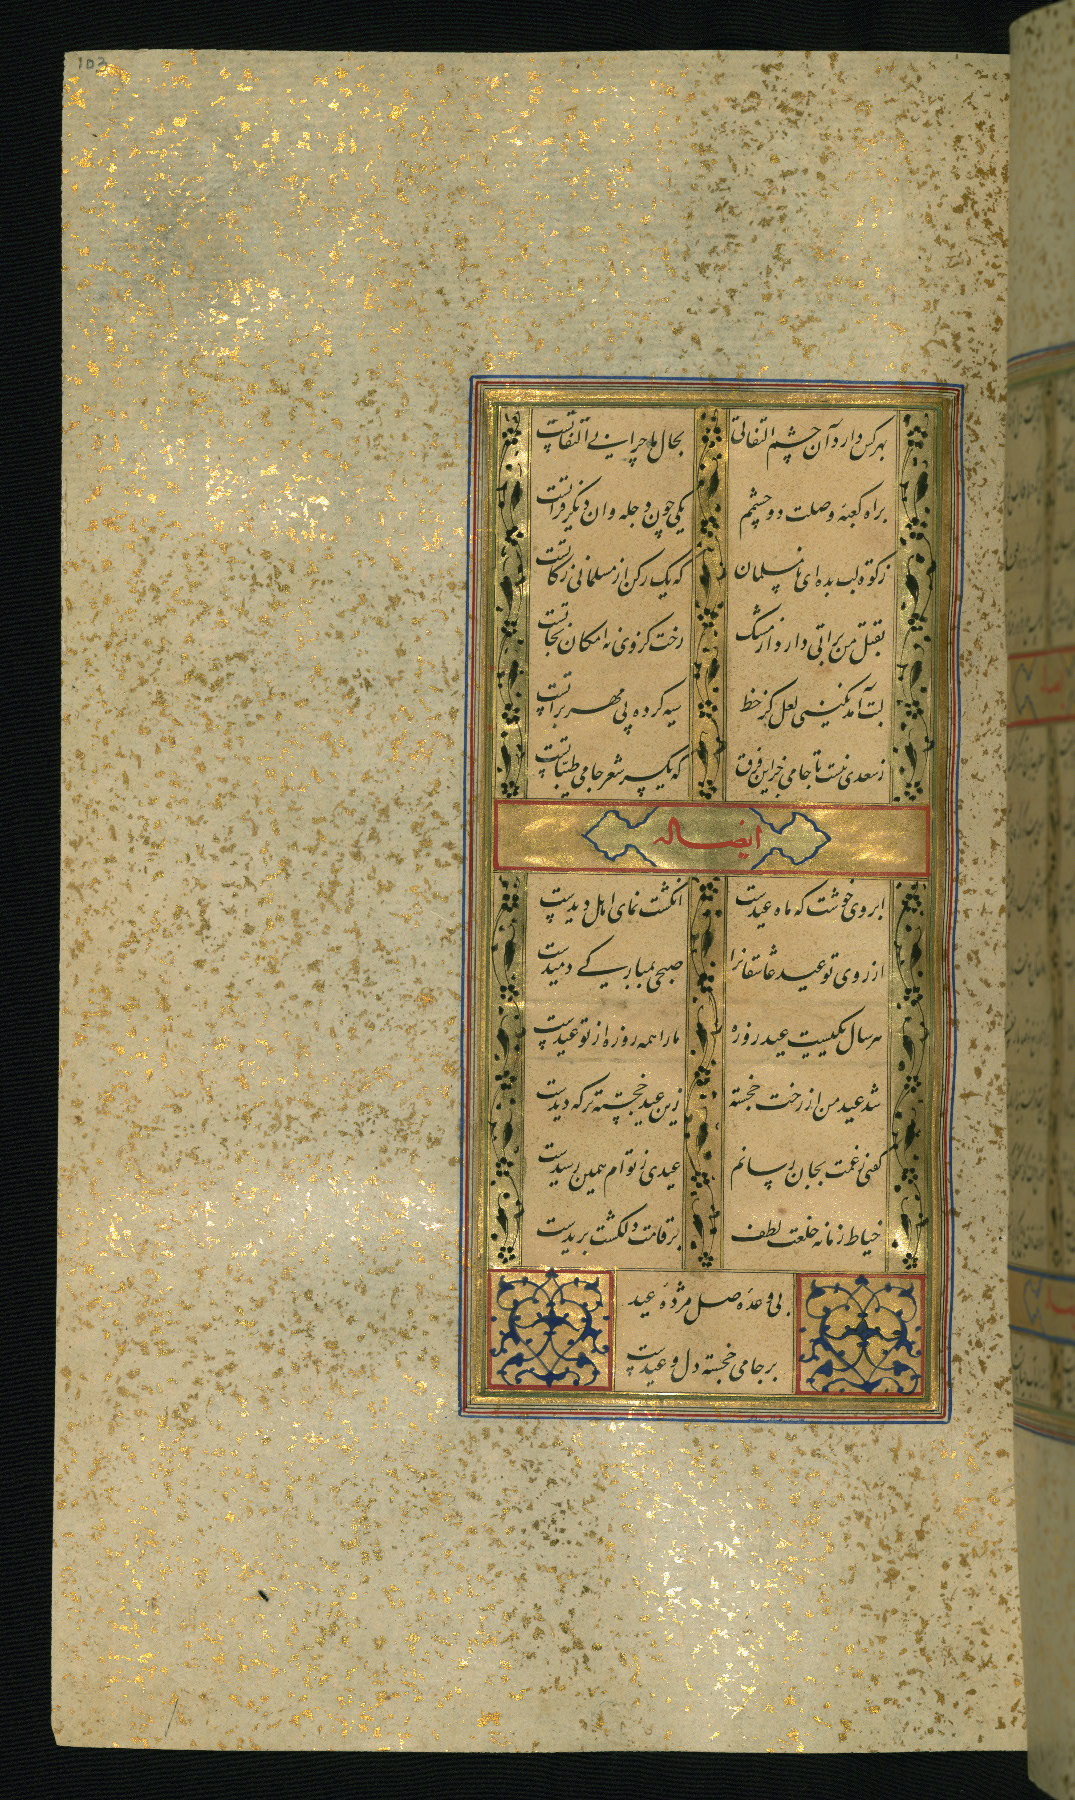 103
بهرکس دارد آن چشم التفاتی بحال ما چرا این بی التفاتیست
براه کعبهٔ وصلت دو چشمم یکی چون دجله وان دیگر فراتست
زکوة لب بده ای نامسلمان که یک رکن از مسلمانی زکاتست
بقتل من براتی دارد از مشک رخت کز وی نه امکان نجاتست
لبت آمد نگینی لعل کز خط سیه کرده پی مهر براتست
ز سعدی نیست تا جامی جز این فرق که یکسر شعر جامی طیباتست
ایضا له
ابروی خوشت که ماه عیدست انگشت نمای اهل دیدست
از روی تو عید عاشقانرا صبحی بمبارکی دمیدست
هر سال یکیست عید روزه ما را همه روزه از تو عیدست
شد عید من از رخت خجسته زین عید خجسته تر که دیدست
گفتی ز غمت بجان رسانم عیدی ز توام همین رسیدست
خیاط زمانه خلعت لطف بر قامت دلکشت بریدست
بی وعدهٔ وصل مژدهٔ عید
بر جامی خجسته دل وعیدست